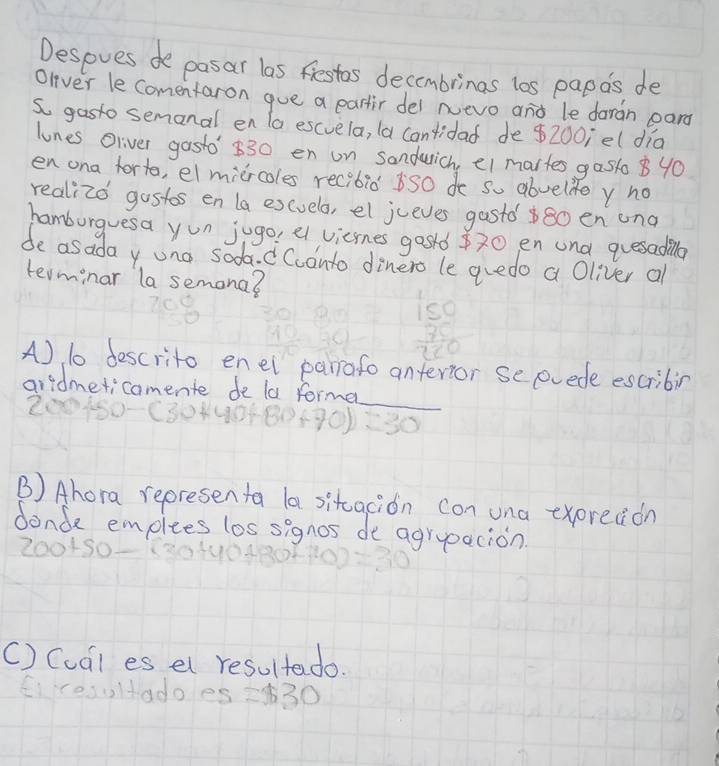 Despues de pasar las fiestas decembrinas los papás de
Oliver le comentaron que a partir del nuevo año le darán para
su gasto semanal en la escuela, la cantidad de $200; el día
lunes Oliver gastó $30 en un sandwich, el martes gasto $40
en una torta, el miércoles recibió $50 de su abuelito y no
realizó gastos en la escuela, el jueves gastó $80 en una
hamburguesa y un jugo, el viernes gastó $70 en una quesadilla
de asada y una soda. ¿Cuánto dinero le quedo a Oliver al
terminar la semana?
200 30 80 150
50 40 70 70
220
A) lo descrito en el parrafo anterior se puede escribir
aridmeticamente de la forma______
200+50-(30+40+80+70)=30
B) Ahora representa la situación con una expreción
donde emplees los signos de agrupación.
200+50-(30+40+80+70)=30
C) Cuál es el resultado.
El resultado es =$30